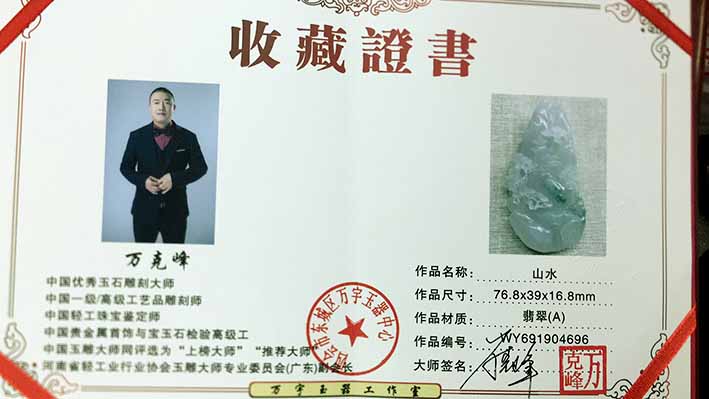 收藏證書
万克峰
中国优秀玉石雕刻大师
中国一级/高级工艺品雕刻师
中国轻工珠宝鉴定师
中国贵金属首饰与宝玉石检验高级工
中国玉雕大师网评选为“上榜大师”“推荐大师”
河南省轻工业行业协会玉雕大师专业委员会(广东)副会长
会市东城区万宇玉器中心
作品名称: 山水
作品尺寸: 76.8x39x16.8mm
作品材质: 翡翠(A)
作品编号: WY691904696
大师签名:
万克峰
万宇玉器工作室